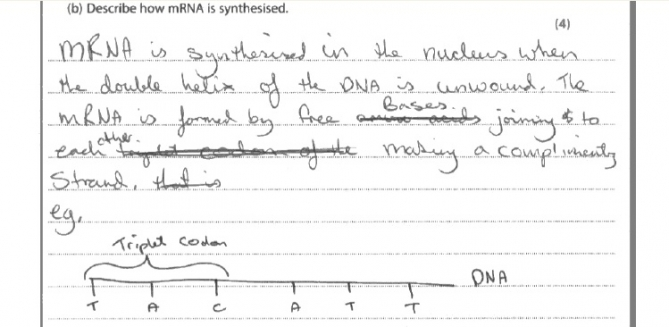 (b) Describe how mRNA is synthesised.
(4)
mRNA is synthesised in the nucleus when
the double helix of the DNA is unwound. The
mRNA is formed by free Bases. joining to
each other making a complimenty
Strand, that is
eg.
Triplet codon
DNA
T A C A T T